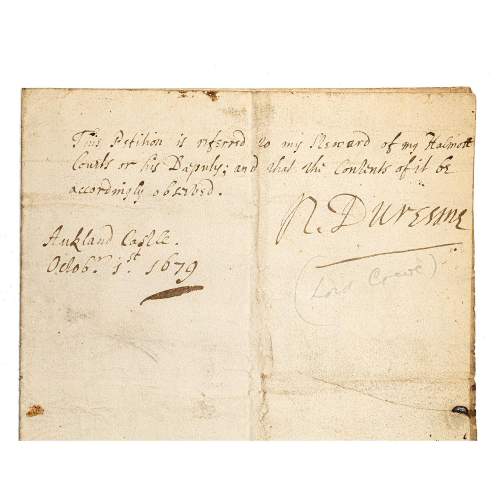 This Petition is referred to my Steward of my Halmott
Courts or his Deputy; and that the Contents of it be
accordingly observed.
N. Duresme
Aukland Castle.
Octobr. 1st. 1679
(Lord Crewe)